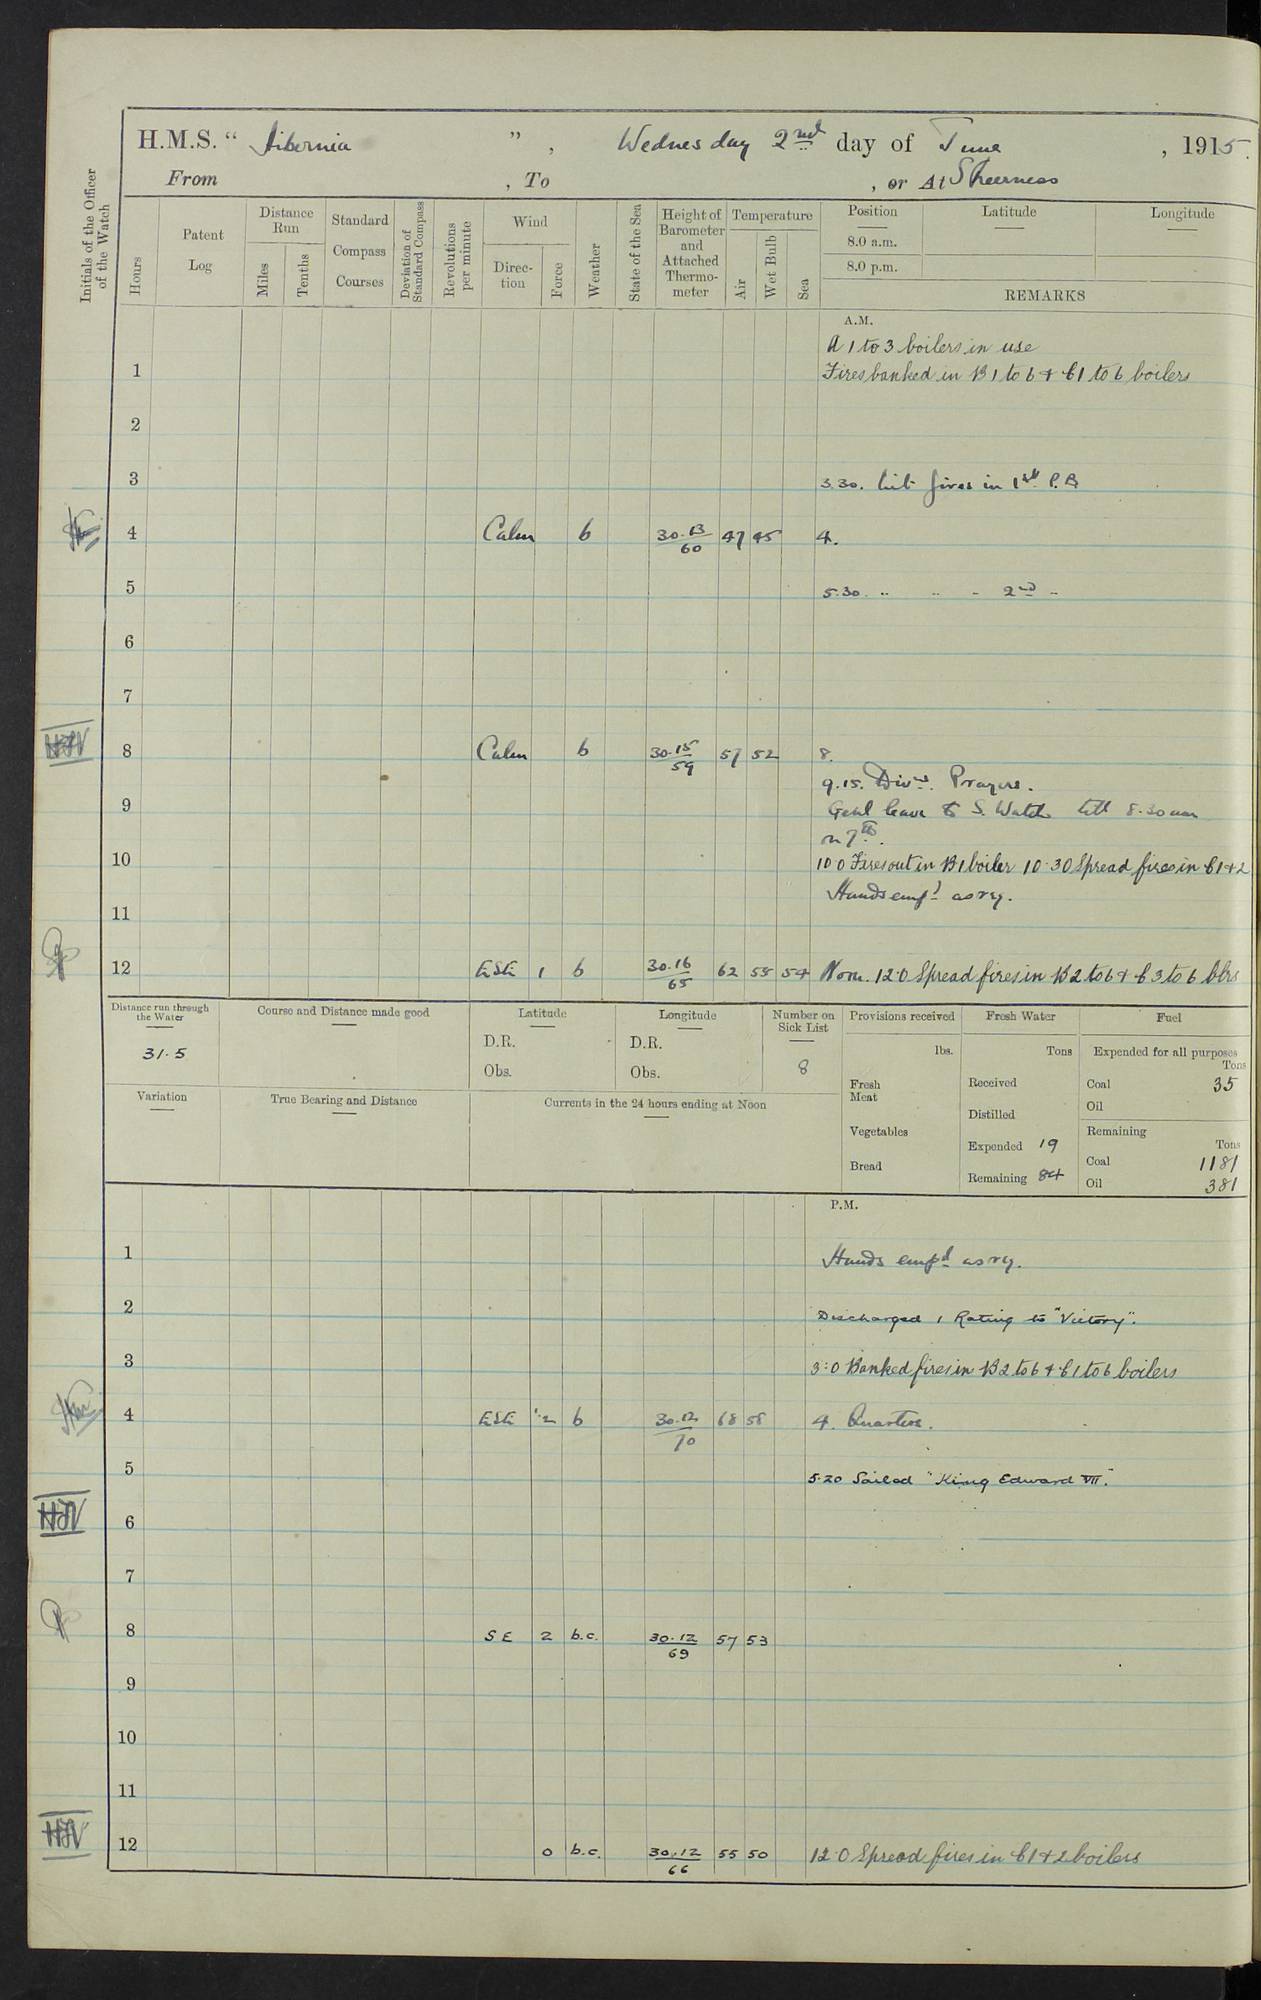 H.M.S. " Hibernia " , Wednesday 2nd day of June , 1915.
From , To , or At Sheerness
Initials of the Officer of the Watch
Hours
Patent Log
Distance Run
Miles
Tenths
Standard Compass Courses
Deviation of Standard Compass
Revolutions per minute
Wind
Direc-tion
Force
Weather
State of the Sea
Height of Barometer and Attached Thermo-meter
Temperature
Air
Wet Bulb
Sea
Position Latitude Longitude
8.0 a.m.
8.0 p.m.
REMARKS
A.M.
A 1 to 3 boilers in use
1 Fires banked in B 1 to 6 + C 1 to 6 boilers
2
3 3.30. Lit fires in 1st P.B
4 Calm b 30.13/60 47 45 4.
5 5.30. " " " 2nd "
6
7
8 Calm b 30.15/59 57 52 8.
9.15. Divns. Prayers.
9 Genl leave to S. Watch till 8.30 am
on 7th.
10 10.0 Fires out in B1 boiler 10.30 Spread fires in C1+2
Hands empd as ry.
11
12 ESE 1 b 30.16/65 62 55 54 Noon. 12.0 Spread fires in B 2 to 6 + C 3 to 6 blrs
Distance run through the Water
31.5
Course and Distance made good
Latitude
D.R.
Obs.
Longitude
D.R.
Obs.
Number on Sick List
8
Variation
True Bearing and Distance
Currents in the 24 hours ending at Noon
Provisions received
lbs.
Fresh Meat
Vegetables
Bread
Fresh Water
Tons
Received
Distilled
Expended 19
Remaining 84
Fuel
Expended for all purposes
Tons
Coal 35
Oil
Remaining
Tons
Coal 1181
Oil 381
P.M.
1 Hands empd as ry.
2 Discharged 1 Rating to "Victory".
3 3.0 Banked fires in B 2 to 6 + C 1 to 6 boilers
4 ESE 1.2 b 30.12/70 68 58 4. Quarters.
5 5.20 Sailed "King Edward VII".
6
7
8 SE 2 b.c. 30.12/69 57 53
9
10
11
12 0 b.c. 30.12/66 55 50 12.0 Spread fires in C 1 + 2 boilers